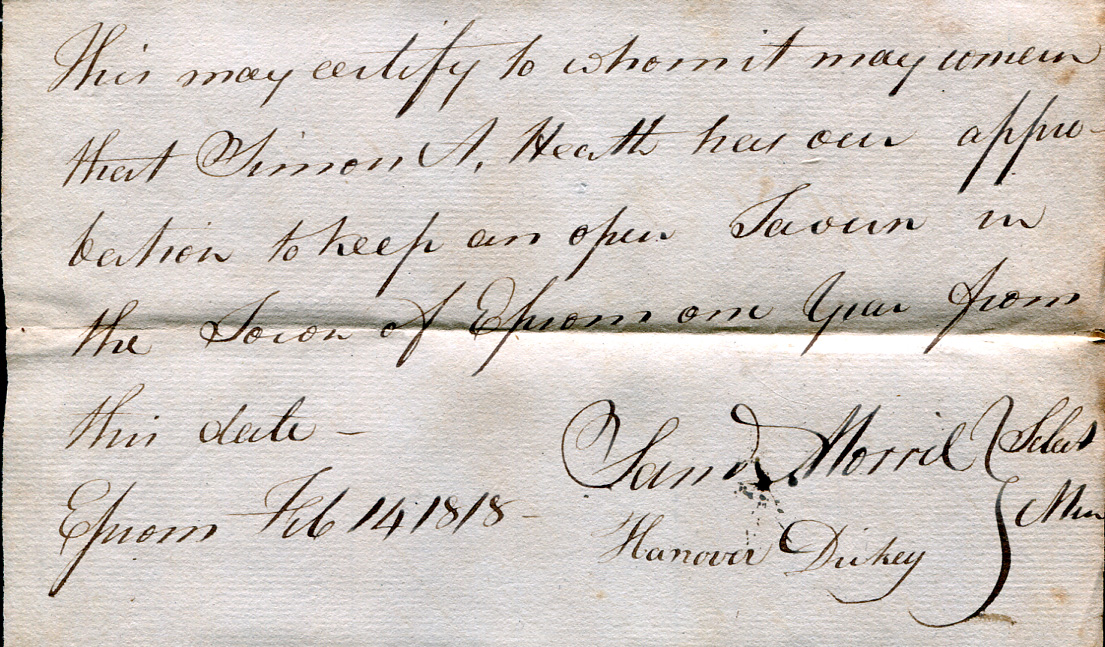 This may certify to whom it may concern
that Simon A. Heath has our appro-
bation to keep an open Tavern in
the Town of Epsom one Year from
this date -
Epsom Feb 14 1818 -
Sam^l Morril } Select
Hanover Dickey } Men